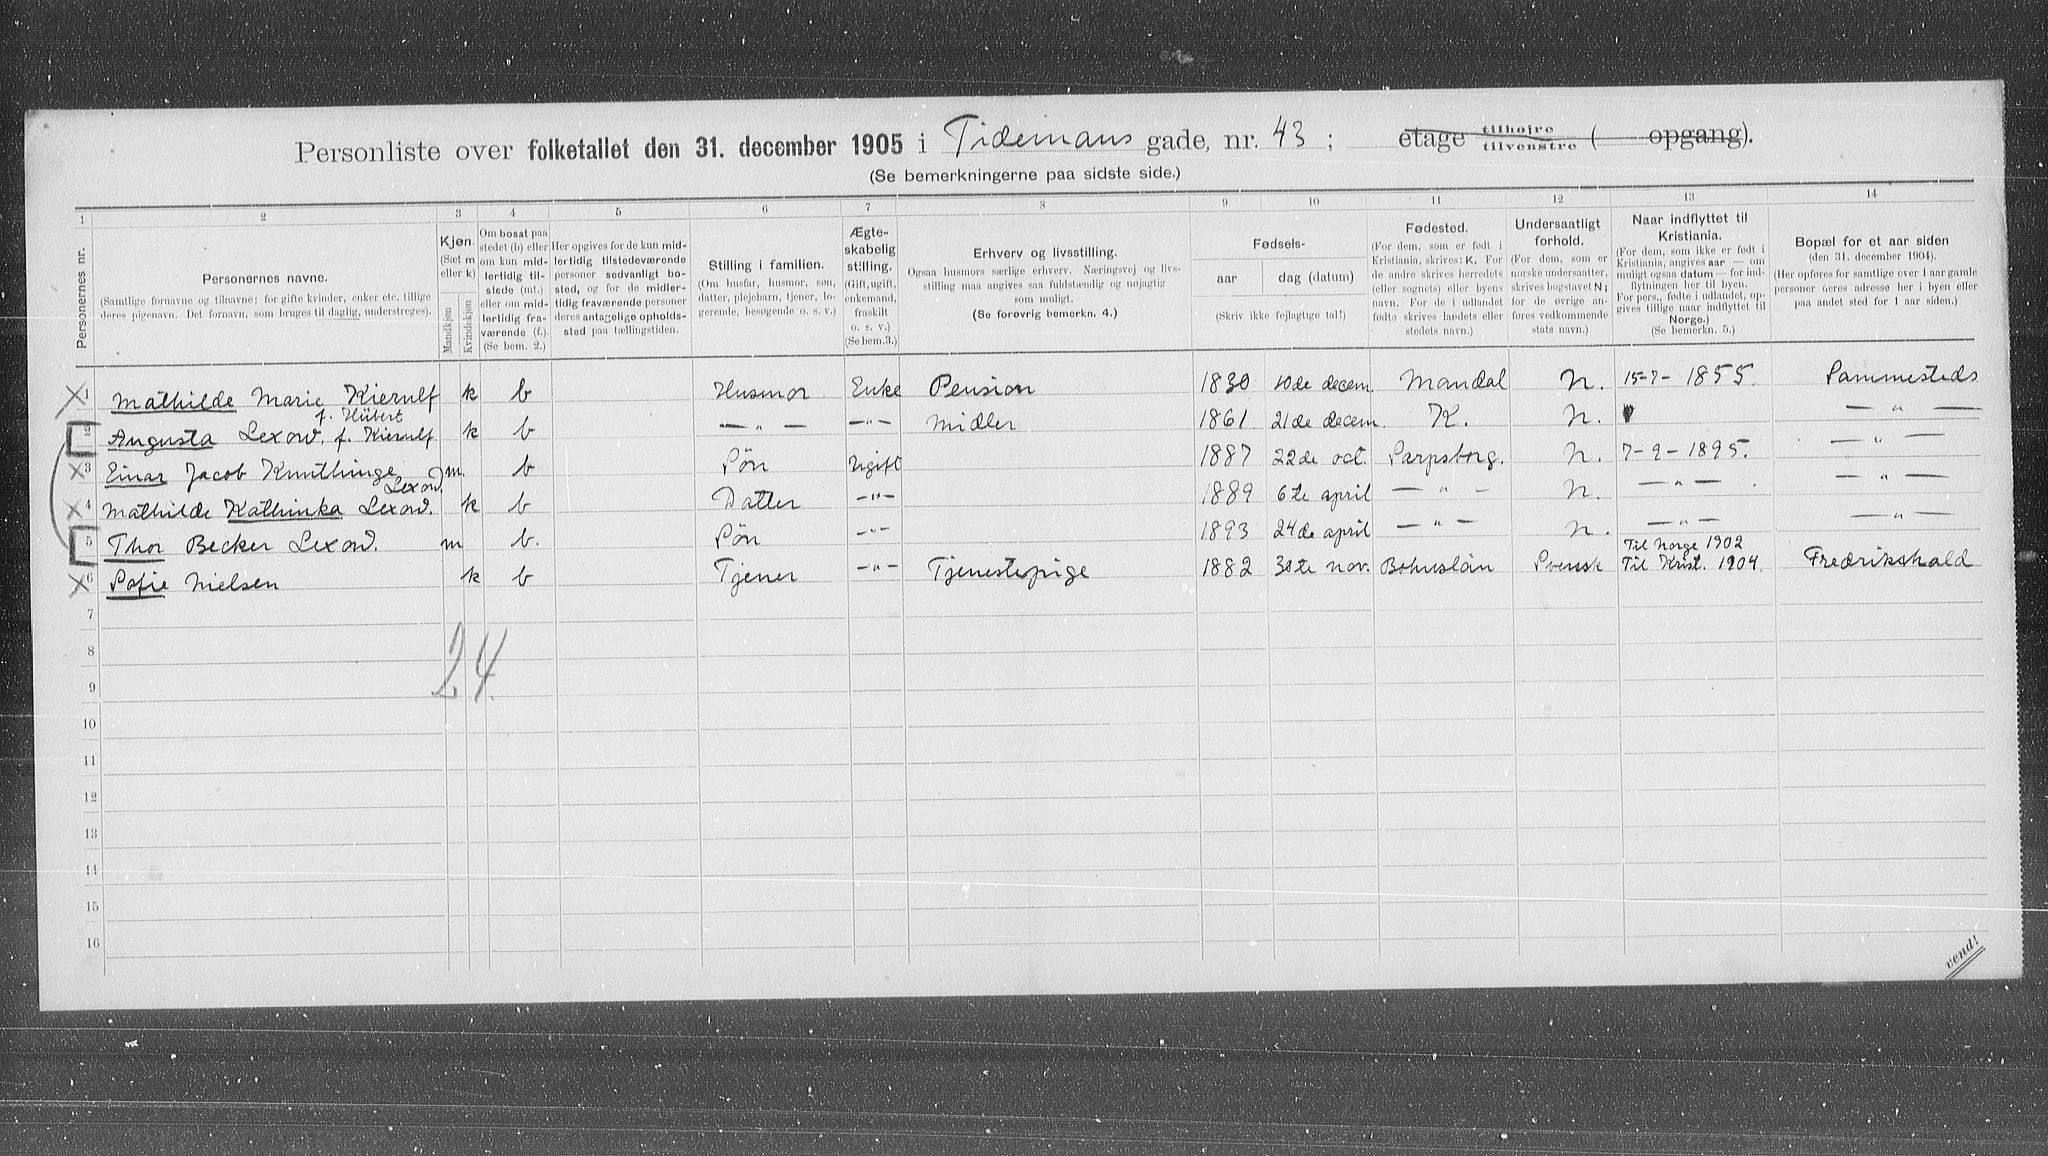 Personliste over folketallet den 31. december 1905 i Tidemans gade, nr. 43; etage tilhøjre tilvenstre ( opgang).
(Se bemerkningerne paa sidste side.)
1 2 3 4 5 6 7 8 9 10 11 12 13 14
Personernes nr.
Personernes navne.
(Samtlige fornavne og tilnavne; for gifte kvinder, enker etc. tillige
deres pigenavn. Det fornavn, som bruges til daglig, understreges).
Kjøn.
(Sæt m
eller k)
Mandkjøn
Kvindekjøn
Om bosat paa
stedet (b) eller
om kun mid-
lertidig til-
stede (mt.)
eller om mid-
lertidig fra-
værende (f.)
(Se bem. 2.)
Her opgives for de kun mid-
lertidig tilstedeværende
personer sedvanligt bo-
sted, og for de midler-
tidig fraværende personer
deres antagelige opholds-
sted paa tællingstiden.
Stilling i familien.
(Om husfar, husmor, søn,
datter, plejebarn, tjener, lo-
gerende, besøgende o. s. v.)
Ægte-
skabelig
stilling.
(Gift, ugift,
enkemand,
fraskilt
o. s. v.)
(Se bem.3.)
Erhverv og livsstilling.
Ogsaa husmors særlige erhverv. Næringsvej og livs-
stilling maa angives saa fuldstændig og nøjagtig
som muligt.
(Se forøvrig bemerkn. 4.)
Fødsels-
aar dag (datum)
(Skriv ikke fejlagtige tal!)
Fødested.
(For dem, som er født i
Kristiania, skrives: K. For
de andre skrives herredets
(eller sognets) eller byens
navn. For de i udlandet
fødte skrives landets eller
stedets navn.)
Undersaatligt
forhold.
(For dem, som er
norske undersaatter,
skrives bogstavet N;
for de øvrige an-
føres vedkommende
stats navn.)
Naar indflyttet til
Kristiania.
(For dem, som ikke er født i
Kristiania, angives aar — om
muligt ogsaa datum — for ind-
flytningen her til byen.
For pers., fødte i udlandet, op-
gives tillige naar indflyttet til
Norge.)
(Se bemerkn. 5.)
Bopæl for et aar siden
(den 31. december 1904).
(Her opføres for samtlige over 1 aar gamle
personer deres adresse her i byen eller
paa andet sted for 1 aar siden.)
1 Mathilde Marie Kierulf k b Husmor Enke Pension 1830 10de decem. Mandal N. 15-7-1855. Sammesteds
f. Hübert
2 Augusta Lexow, f. Kierulf k b — „ — — „ — Midler 1861 21de decem. K. N. — „ —
3 Einar Jacob Knuthinge m. b Søn Ugift 1887 22de oct. Sarpsborg. N. 7-9-1895. — „ —
Lexow.
4 Mathilde Kathinka Lexow. k b Datter — „ — 1889 6te april — „ — N. — „ — — „ —
5 Thor Becker Lexow. m b. Søn — „ — 1893 24de april — „ — N. — „ — — „ —
Til Norge 1902
6 Sofie Nielsen k b Tjener — „ — Tjenestepige 1882 30te nov. Bohuslän Svensk Til Krist. 1904. Fredrikshald
7
8
24.
9
10
11
12
13
14
15
16
vend!